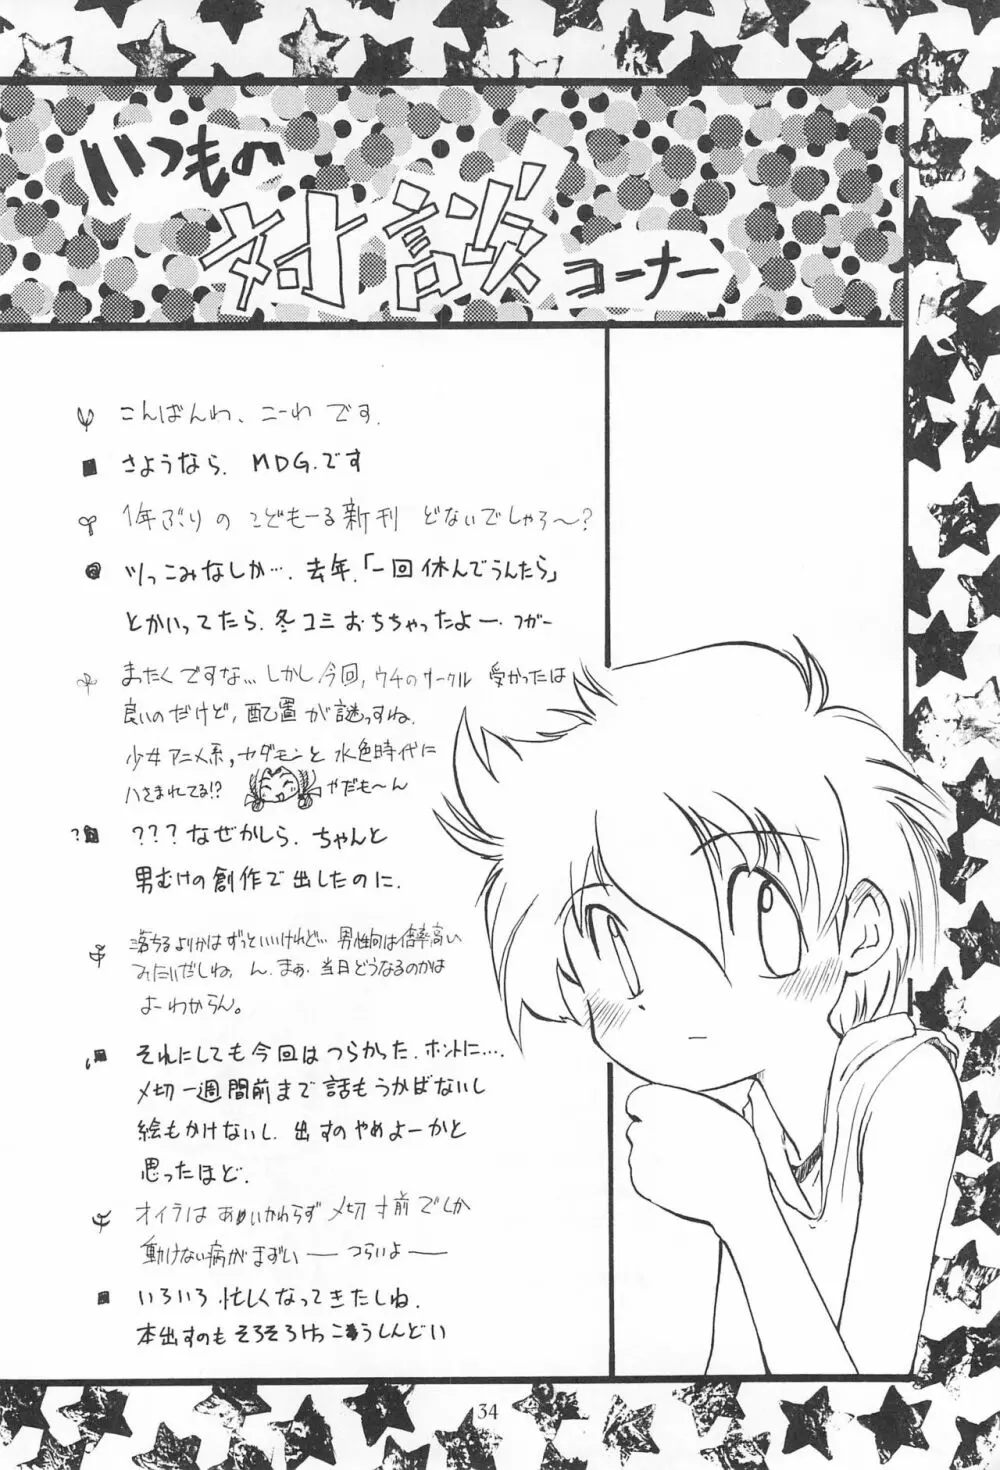 いつもの
対談 コーナー
こんばんわ、ニーわ です.
さようなら. MDG.です
1年ぶりの こどもーる 新刊 どないでしゃろ〜?
ツっこみなしか…. 去年.「一回休んでうんたら」
とかいってたら.冬コミおちちゃったよー. フガー
まったくですな… しかし今回, ウチのサークル 受かったは
良いのだけど, 配置が謎っすね.
少女アニメ系, ヤダモンと 水色時代に
ハさまれてる!? やだも〜ん
???なぜかしら. ちゃんと
男むけの創作で出したのに.
落ちるよりかはずっといいけれど… 男性向は倍率高い
みたいだしね. ん. まぁ. 当日どうなるのかは
よーわからん。
それにしても今回は つらかった. ホントに….
〆切一週間前まで話もうかばないし
絵もかけないし. 出すのやめよーかと
思ったほど.
オイラは あいかわらず 〆切寸前でしか
動けない病がまずい ー つらいよー
いろいろ 忙しくなってきたしね.
本出すのも そろそろけっこうしんどい
34